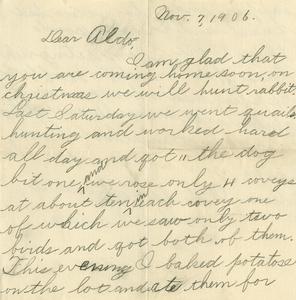 Nov. 7, 1906.
Dear Aldo,
I am glad that
you are coming home soon, on
christmas we will hunt rabbit.
Last Saturday we went quail
hunting and worked hard
all day and got 11 the dog
bit one and we rose only 4 coveys
at about ten in each covey one
of which we saw only two
birds and got both of them.
This evening I baked potatoes
on the lot and ate them for